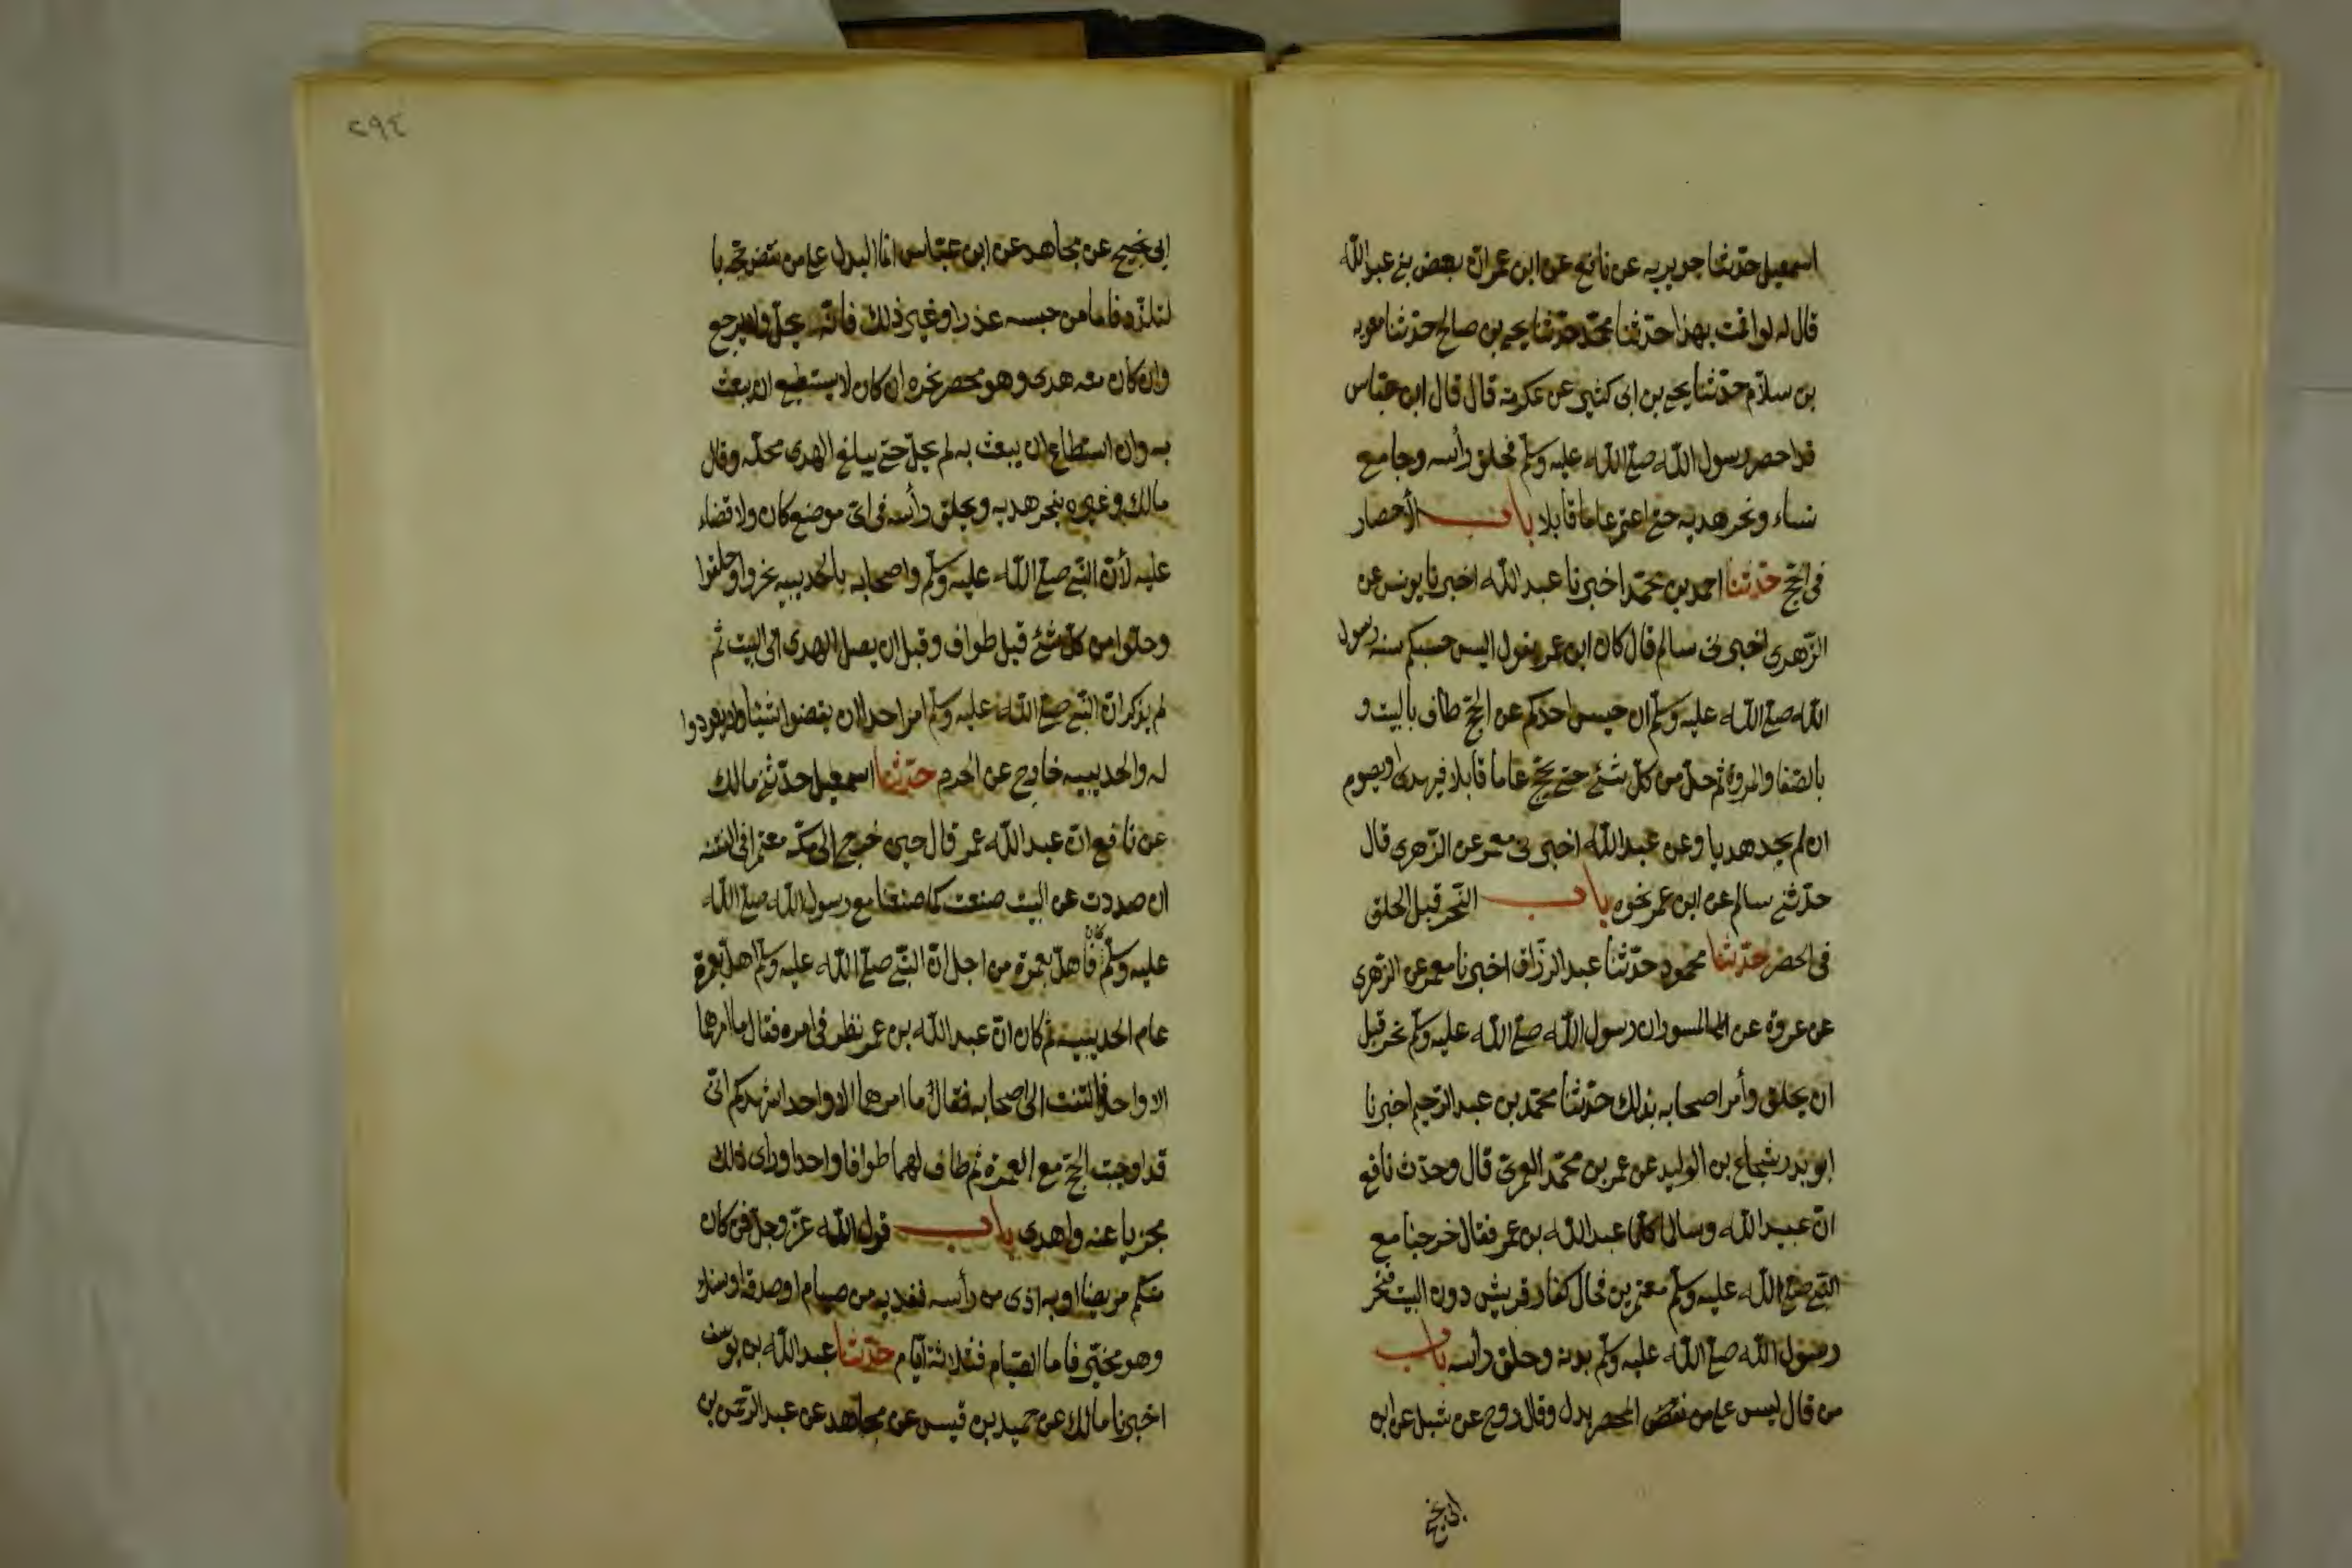 اسمعيل حدّثنا جويريه عن نافع عن ابن عمر انّ بعض بني عبد اللّه
قال له لو اقمت بهذا حدّثنا محمّد حدّثنا يحيى بن صالح حدّثنا معويه
بن سلاّم حدّثنا يحيى بن ابى كثير عن عكرمة قال قال ابن عبّاس
قد احصر رسول اللّه صلى اللّه عليه وسلّم فحلق رأسه وجامع
نساء ونحر هديه حتى اعتمر عاما قابلا باب الأحصار
فى الحجّ حدّثنا احمد بن محمّد اخبرنا عبد اللّه اخبرنا يونس عن
الزّهرى اخبرنى سالم قال كان ابن عمر يقول اليس حسبكم سنه رسول
اللّه صلى اللّه عليه وسلّم ان حبس احدكم عن الحجّ طاف بالبيت و
بالصّفا والمروة ثم حلّ من كلّ شئ حتى يحجّ عاما قابلا فيهدى او يصوم
ان لم يجد هديا وعن عبد اللّه اخبرنى معمر عن الزّهرى قال
حدّثنى سالم عن ابن عمر نحوه باب النّحر قبل الحلق
فى الحصر حدّثنا محمود حدّثنا عبد الرزّاق اخبرنا معمر عن الزّهرى
عن عروة عن المسور ان رسول اللّه صلى اللّه عليه وسلّم نحر قبل
ان يحلق وأمر اصحابه بذلك حدّثنا محمّد بن عبد الرّحيم اخبرنا
ابو بدر شجاع بن الوليد عن عمر بن محمّد العمرىّ قال وحدّث نافع
انّ عبيد اللّه وسالما كلّما عبد اللّه بن عمر فقال خرجنا مع
النّبى صلى اللّه عليه وسلّم معتمرين فحال كفار قريش دون البيت فنحر
رسول اللّه صلى اللّه عليه وسلّم بدنه وحلق رأسه باب
من قال ليس على من نقض المحصر بدل وقال روح عن شبل عن ابن
ابى نجيح
٢٩٤
ابى نجيح عن مجاهد عن ابن عبّاس انّما البدل على من نقض حجّه با
لتلذّذ فاما من حبسه عذر او غير ذلك فانّه يحلّ ولا يرجع
وان كان معه هدى وهو محصر نحره ان كان لا يستطيع ان يبعث
به وان استطاع ان يبعث به لم يحلّ حتى يبلغ الهدى محلّه وقال
مالك وغيره ينحر هديه ويحلق رأسه فى اىّ موضع كان ولا قضاء
عليه لأنّ النّبى صلى اللّه عليه وسلّم واصحابه بالحديبيه نحروا وحلقوا
وحلّوا من كلّ شئ قبل طواف وقبل ان يصل الهدى الى البيت ثم
لم يذكر انّ النّبى صلى اللّه عليه وسلّم امر احدا ان يقضوا شيئا ولا يعودوا
له والحديبيه خارج عن الحرم حدّثنا اسمعيل حدّثنى مالك
عن نافع انّ عبد اللّه عمر قال حين خرج الى مكّة معتمرا فى الفتنه
ان صددت عن البيت صنعت كما صنعنا مع رسول اللّه صلى اللّه
عليه وسلّم فأهلّ بعمرة من اجل انّ النّبى صلى اللّه عليه وسلّم اهلّ بعمرة
عام الحديبيه ثم كان انّ عبد اللّه بن عمر نظر فى امره فقال ما امرهما
الا واحد فالتفت الى اصحابه فقال ما امرهما الا واحد اشهدكم انّى
قد اوجبت الحجّ مع العمرة ثم طاف لهما طوافا واحدا وراى ذلك
مجزيا عنه واهدى باب قول اللّه عزّ وجلّ فمن كان
منكم مريضا او به اذى من رأسه ففديه من صيام او صدقة او نسك
وهو مخيّر فاما الصّيام فثلاثة ايّام حدّثنا عبد اللّه بن يوسف
اخبرنا مالك عن حميد بن قيس عن مجاهد عن عبد الرّحمن بن